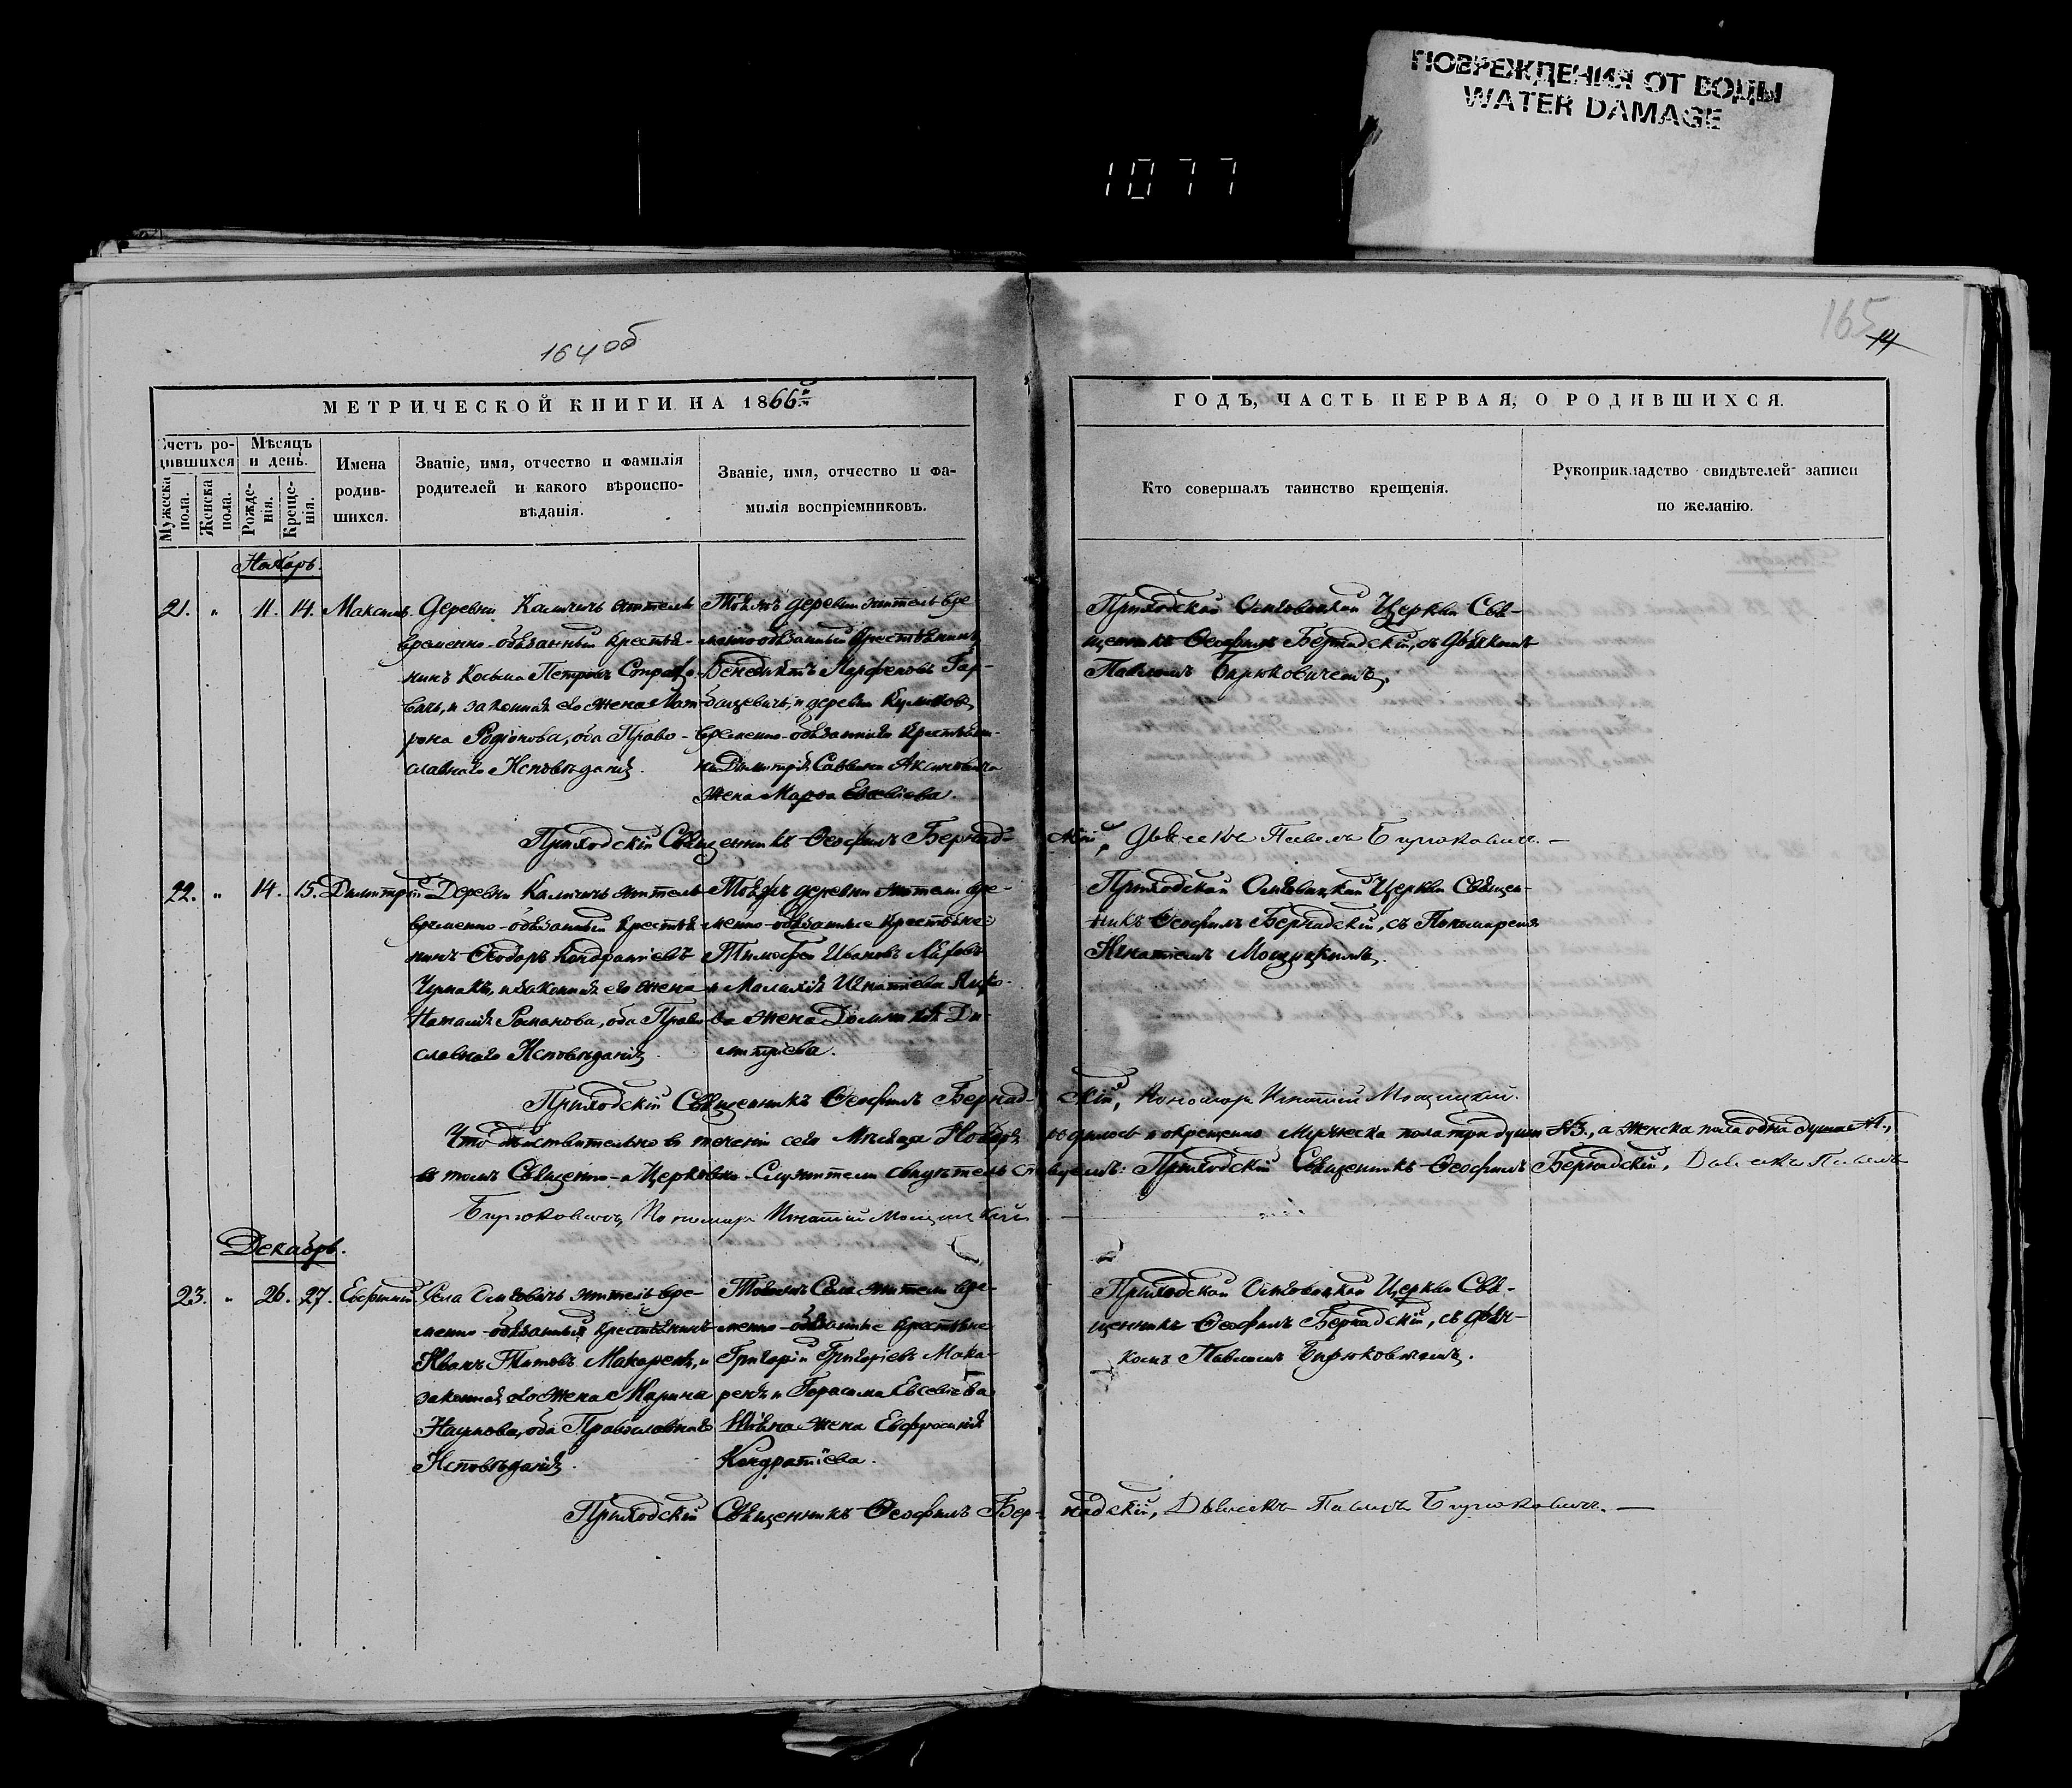 ПОВРЕЖДЕНИЯ ОТ ВОДЫ
WATER DAMAGE
1077
164 об
165
14
МЕТРИЧЕСКОЙ КНИГИ НА 1866й
ГОДЪ, ЧАСТЬ ПЕРВАЯ, О РОДИВШИХСЯ.
Счетъ ро-
дившихся
Мужеска пола.
Женска пола.
Мѣсяцъ
и день.
Рожде-
нія.
Креще-
нія.
Имена
родив-
шихся.
Званіе, имя, отчество и фамилія
родителей и какого вѣроиспо-
вѣданія.
Званіе, имя, отчество и фа-
милія воспріемниковъ.
Кто совершалъ таинство крещенія.
Рукоприкладство свидѣтелей записи
по желанію.
Ноябрь.
21. " 11. 14. Максимъ
Деревни житель
временно-обязанный крестья-
нинъ Косьма Петровъ
и законная его жена Мат-
рона Родіонова, оба Право-
славнаго Исповѣданія.
Тойжъ деревни житель вре-
менно-обязанный крестьянинъ
Бенедиктъ
и деревни
временно-обязаннаго крестьяни-
на Димитрія Саввина
жена Марѳа Евсевіева.
Приходской Церкви Свя-
щенникъ Ѳеофилъ Бернадскій, съ Дьякомъ
Павломъ Бирюковичемъ.
Приходскій Священникъ Ѳеофилъ Бернад-скій, Дьячекъ Павелъ Бирюковичъ.
22. " 14. 15. Димитрій
Деревни житель
временно-обязанный крестья-
нинъ Ѳеодоръ Кондратіевъ
Чумакъ, и законная его жена
Наталія Романова, оба Право-
славнаго Исповѣданія.
Тойжъ деревни жители вре-
менно-обязанные крестьяне:
Тимофей Ивановъ
и Малахія Игнатіева
жена Ди-
митріева.
Приходской Церкви Священ-
никъ Ѳеофилъ Бернадскій, съ Пономаремъ
Игнатіемъ Мощицкимъ.
Приходскій Священникъ Ѳеофилъ Бернад-скій, Пономарь Игнатій Мощицкій.
Что дѣйствительно въ теченіи сего Мѣсяца Ноября родилось и окрещено Мужеска пола три души №3., а Женска пола одна душа №1.,
въ томъ Священно-и Церковно-Служители свидѣтельствуемъ: Приходскій Священникъ Ѳеофилъ Бернадскій, Дьячекъ Павелъ
Бирюковичъ, Пономарь Игнатій Мощицкій
Декабрь.
23. " 26. 27. Евфимій.
Села житель вре-
менно-обязанный крестьянинъ
Иванъ Титовъ Макареня, и
законная его жена Марина
Наумова, оба Православнаго
Исповѣданія.
Тогожъ Села жители вре-
менно-обязанные крестьяне
Григорій Григоріевъ Мака-
реня и Герасима Евсевіева
жена Евфросинія
Кондратіева.
Приходской Церкви Свя-
щенникъ Ѳеофилъ Бернадскій, съ Дьяч-
комъ Павломъ Бирюковичемъ.
Приходскій Священникъ Ѳеофилъ Бер-надскій, Дьячекъ Павелъ Бирюковичъ.